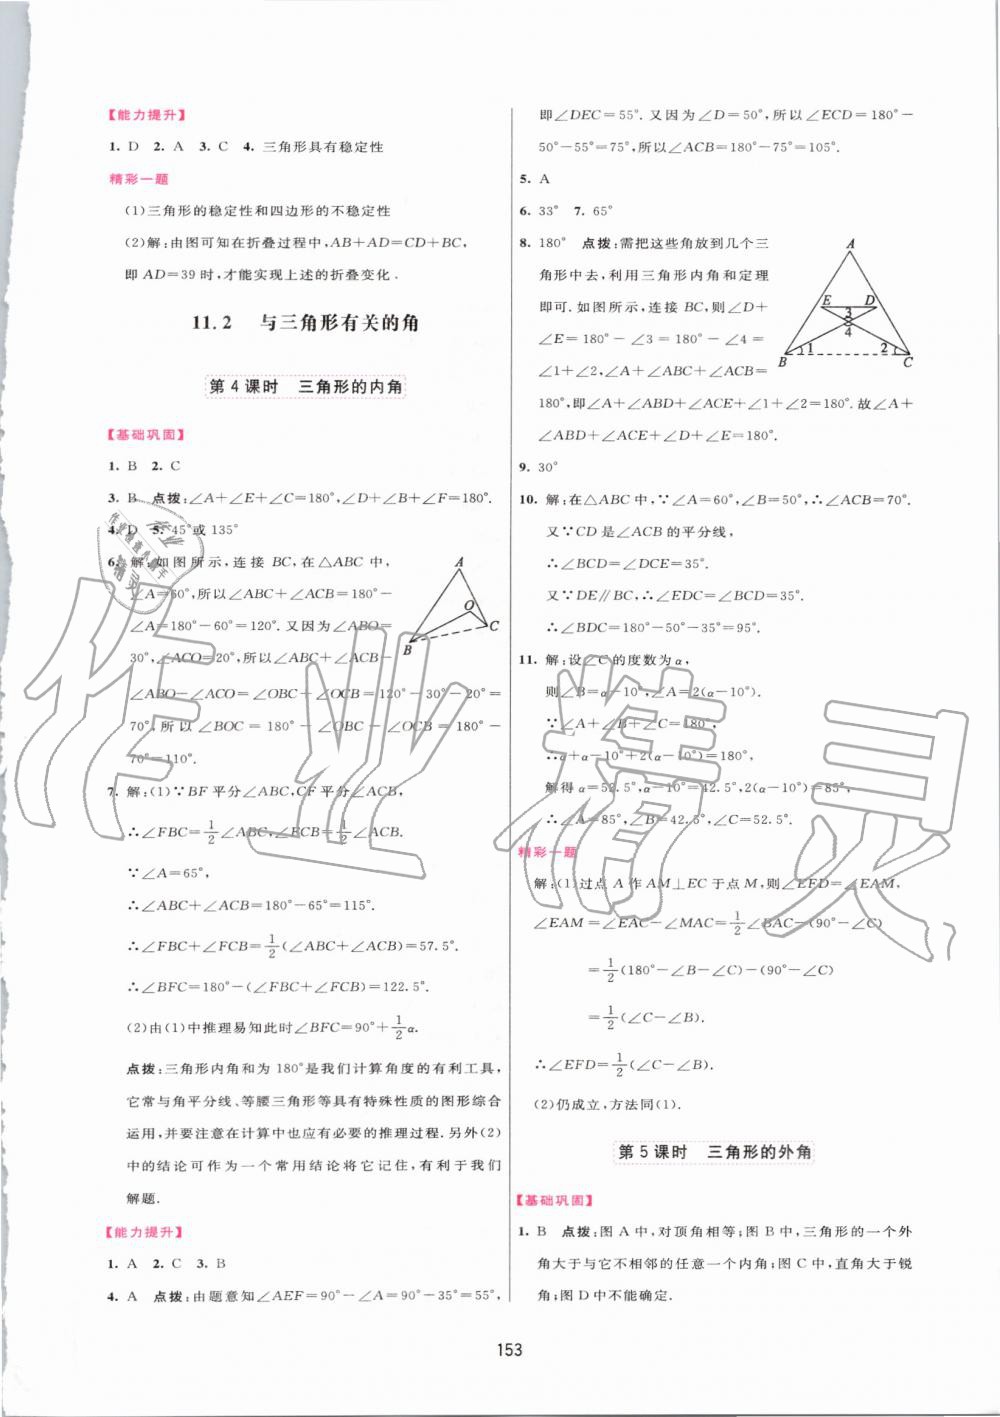 【能力提升】
1. D  2. A  3. C  4. 三角形具有稳定性
精彩一题
(1)三角形的稳定性和四边形的不稳定性
(2)解:由图可知在折叠过程中,AB+AD=CD+BC,
即 AD=39时,才能实现上述的折叠变化.
11.2 与三角形有关的角
第4课时 三角形的内角
【基础巩固】
1. B  2. C
3. B  点拨:∠A+∠E+∠C=180°,∠D+∠B+∠F=180°.
4. D  5. 45°或135°
6. 解:如图所示,连接 BC,在△ABC 中,
∠A=60°,所以∠ABC+∠ACB=180°-
∠A=180°-60°=120°. 又因为∠ABO=
30°,∠ACO=20°,所以∠ABC+∠ACB-
∠ABO-∠ACO=∠OBC+∠OCB=120°-30°-20°=
70°,所以∠BOC=180°-∠OBC-∠OCB=180°-
70°=110°.
A
O
B
C
7. 解:(1)∵BF平分∠ABC,CF平分∠ACB,
∴∠FBC=1/2∠ABC,∠ECB=1/2∠ACB.
∵∠A=65°,
∴∠ABC+∠ACB=180°-65°=115°.
∴∠FBC+∠FCB=1/2(∠ABC+∠ACB)=57.5°.
∴∠BFC=180°-(∠FBC+∠FCB)=122.5°.
(2)由(1)中推理易知此时∠BFC=90°+1/2α.
点拨:三角形内角和为180°是我们计算角度的有利工具,
它常与角平分线、等腰三角形等具有特殊性质的图形综合
运用,并要注意在计算中也应有必要的推理过程.另外(2)
中的结论可作为一个常用结论将它记住,有利于我们
解题.
【能力提升】
1. A  2. C  3. B
4. A  点拨:由题意知∠AEF=90°-∠A=90°-35°=55°,
即∠DEC=55°. 又因为∠D=50°,所以∠ECD=180°-
50°-55°=75°,所以∠ACB=180°-75°=105°.
5. A
6. 33°  7. 65°
8. 180°  点拨:需把这些角放到几个三
角形中去,利用三角形内角和定理
即可.如图所示,连接 BC,则∠D+
∠E=180°-∠3=180°-∠4=
∠1+∠2,∠A+∠ABC+∠ACB=
180°,即∠A+∠ABD+∠ACE+∠1+∠2=180°.故∠A+
∠ABD+∠ACE+∠D+∠E=180°.
A
E
D
3
4
1
2
B
C
9. 30°
10. 解:在△ABC中,∵∠A=60°,∠B=50°,∴∠ACB=70°.
又∵CD是∠ACB的平分线,
∴∠BCD=∠DCE=35°.
又∵DE∥BC,∴∠EDC=∠BCD=35°.
∴∠BDC=180°-50°-35°=95°.
11. 解:设∠C的度数为α,
则∠B=α-10°,∠A=2(α-10°).
∵∠A+∠B+∠C=180°,
∴α+α-10°+2(α-10°)=180°,
解得α=52.5°,α-10°=42.5°,2(α-10°)=85°,
∴∠A=85°,∠B=42.5°,∠C=52.5°.
精彩一题
解:(1)过点A作AM⊥EC于点M,则∠EFD=∠EAM,
∠EAM=∠EAC-∠MAC=1/2∠BAC-(90°-∠C)
=1/2(180°-∠B-∠C)-(90°-∠C)
=1/2(∠C-∠B).
∴∠EFD=1/2(∠C-∠B).
(2)仍成立,方法同(1).
第5课时 三角形的外角
【基础巩固】
1. B  点拨:图A中,对顶角相等;图B中,三角形的一个外
角大于与它不相邻的任意一个内角;图C中,直角大于锐
角;图D中不能确定.
153
作业精灵